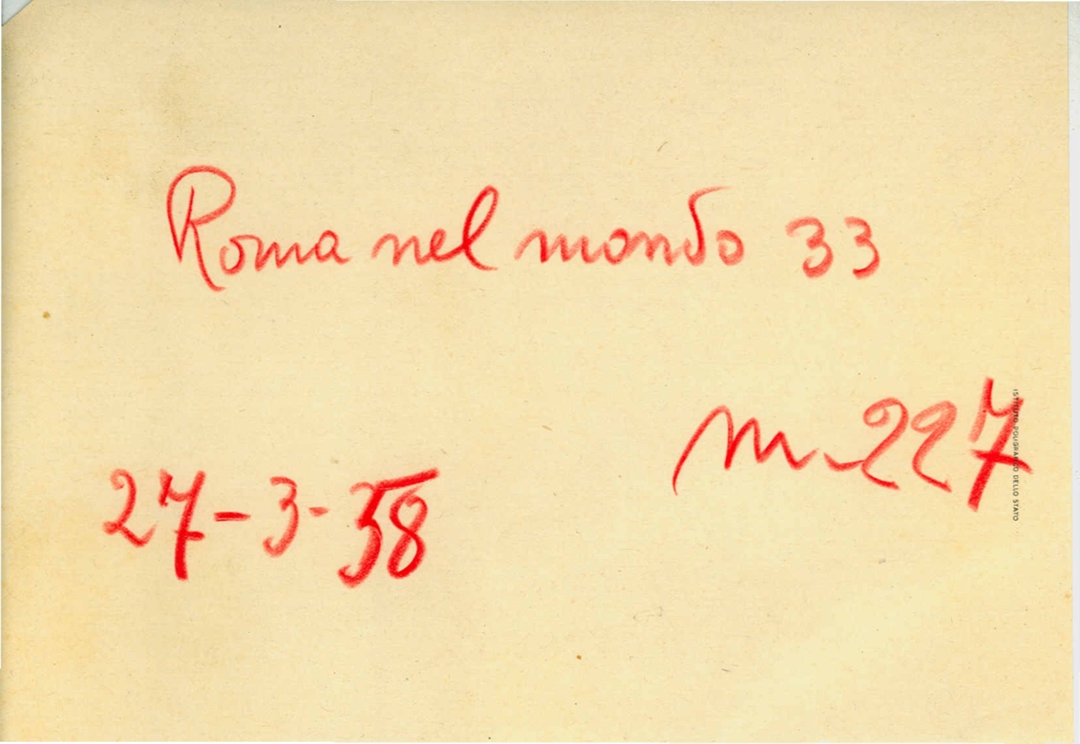 Roma nel mondo 33
m. 227
27-3-58
ISTITUTO POLIGRAFICO DELLO STATO